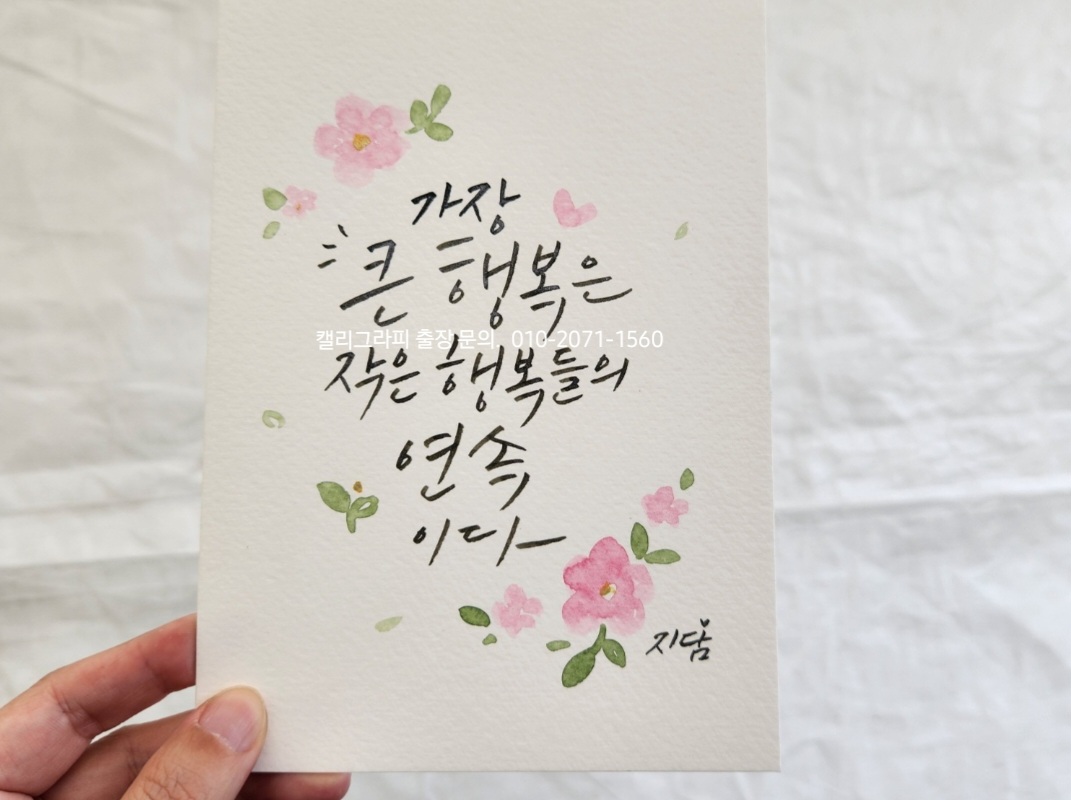 가장
큰 행복은
캘리그라피 출장 문의. 010-2071-1560
작은 행복들의
연속
이다
지담